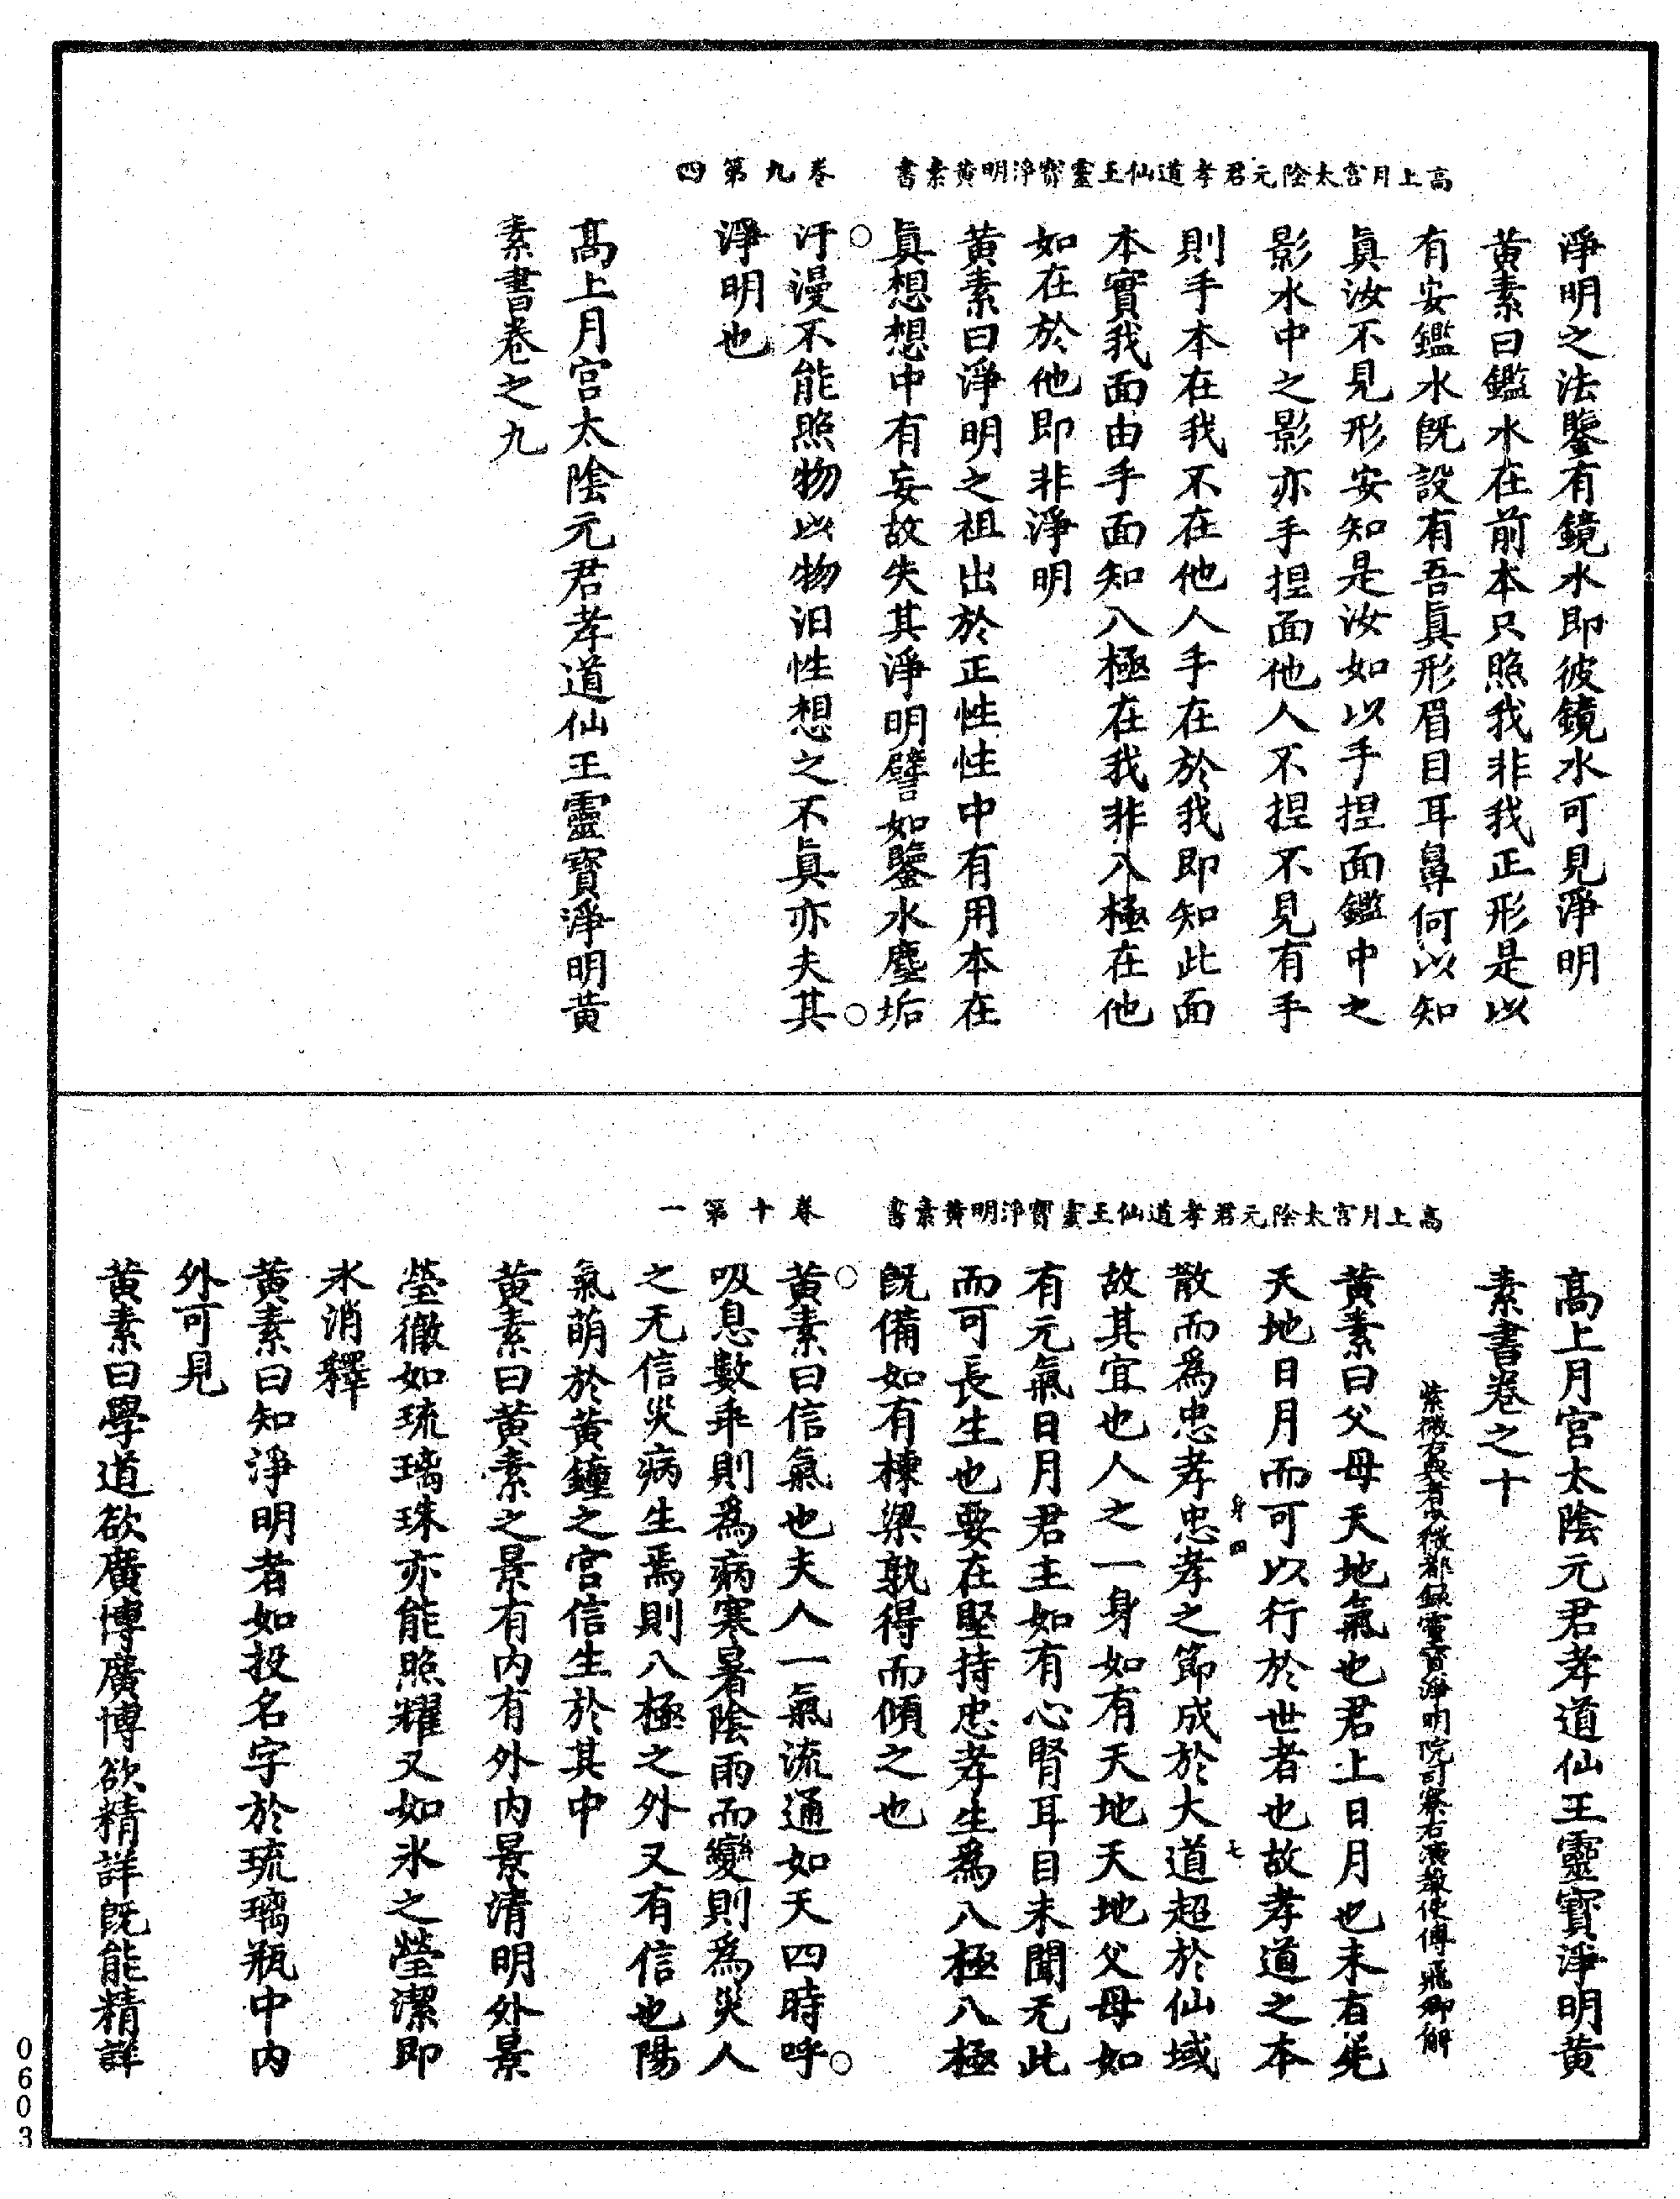 高上月宫太陰元君孝道仙王靈寶淨明黄素書　卷九第四
淨明之法鑒有鏡水即彼鏡水可見淨明
黄素曰鑑水在前本只照我非我正形是以
有安鑑水既設有吾眞形眉目耳鼻何以知
眞汝不見形安知是汝如以手揑面鑑中之
影水中之影亦手揑面他人不揑不見有手
則手本在我不在他人手在於我即知此面
本實我面由手面知八極在我非八極在他
如在於他即非淨明
黄素曰淨明之祖出於正性性中有用本在
眞想想中有妄故失其淨明譬如鑒水塵垢
汙漫不能照物以物汩性想之不眞亦夫其
淨明也
高上月宫太陰元君孝道仙王靈寶淨明黄
素書卷之九
高上月宫太陰元君孝道仙王靈寶淨明黄素書　卷十第一
高上月宫太陰元君孝道仙王靈寶淨明黄
素書卷之十
紫微右眞者太微都錄靈寶淨明院司察右演教使傅飛卿解
黄素曰父母天地氣也君上日月也未有先
天地日月而可以行於世者也故孝道之本
身四
七
散而爲忠孝忠孝之節成於大道超於仙域
故其宜也人之一身如有天地天地父母如
有元氣日月君主如有心腎耳目未聞无此
而可長生也要在堅持忠孝生爲八極八極
旣備如有棟梁孰得而傾之也
黄素曰信氣也夫人一氣流通如天四時呼
吸息數乖則爲病寒暑陰雨而變則爲災人
之无信災病生焉則八極之外又有信也陽
氣萌於黄鐘之宫信生於其中
黄素曰黄素之景有内有外内景清明外景
瑩徹如琉璃珠亦能照耀又如氷之瑩潔即
氷消釋
黄素曰知淨明者如投名字於琉璃瓶中内
外可見
黄素曰學道欲廣博廣博欲精詳既能精詳
0603